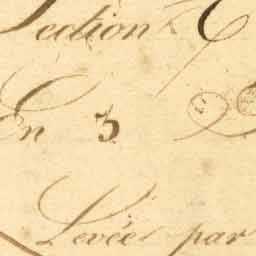 Section C
En 3
Levée par